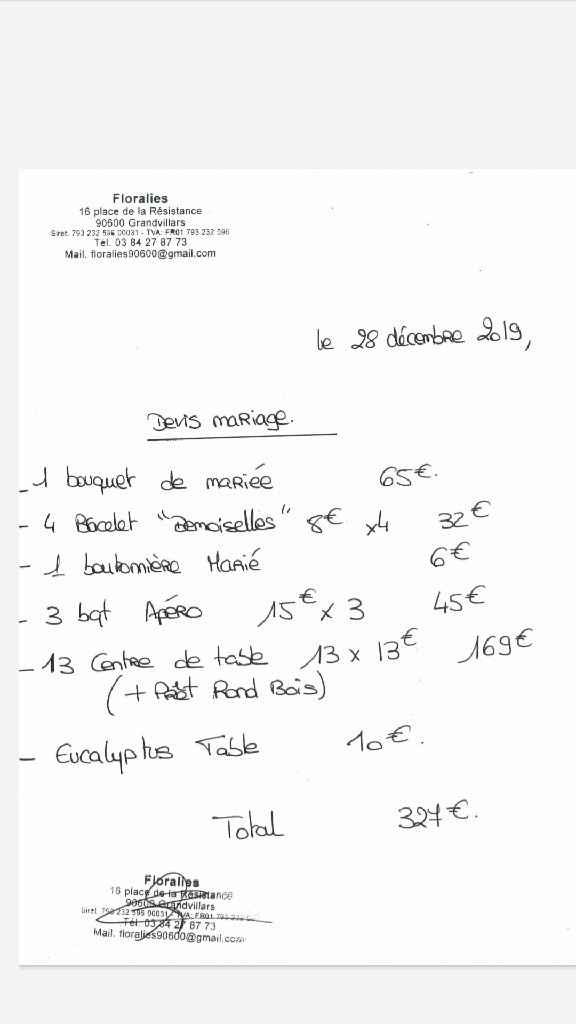 Floralies
16 place de la Résistance
90600 Grandvillars
Siret. 793 232 596 00031 - TVA: FR01 793 232 596
Tel. 03 84 27 87 73
Mail. floralies90600@gmail.com
le 28 décembre 2019,
Devis mariage.
- 1 bouquet de mariée 65€.
- 4 Bracelet "Demoiselles" 8€ x4 32€
- 1 boutonnière Marié 6€
- 3 bqt Apéro 15€ x 3 45€
- 13 Centre de table 13 x 13€ 169€
(+ Rond Bois)
- Eucalyptus Table 10€.
Total 327€.
Floralies
16 place de la Résistance
90600 Grandvillars
Siret. 793 232 596 00031 - TVA: FR01 793 232 596
Tél. 03 84 27 87 73
Mail. floralies90600@gmail.com